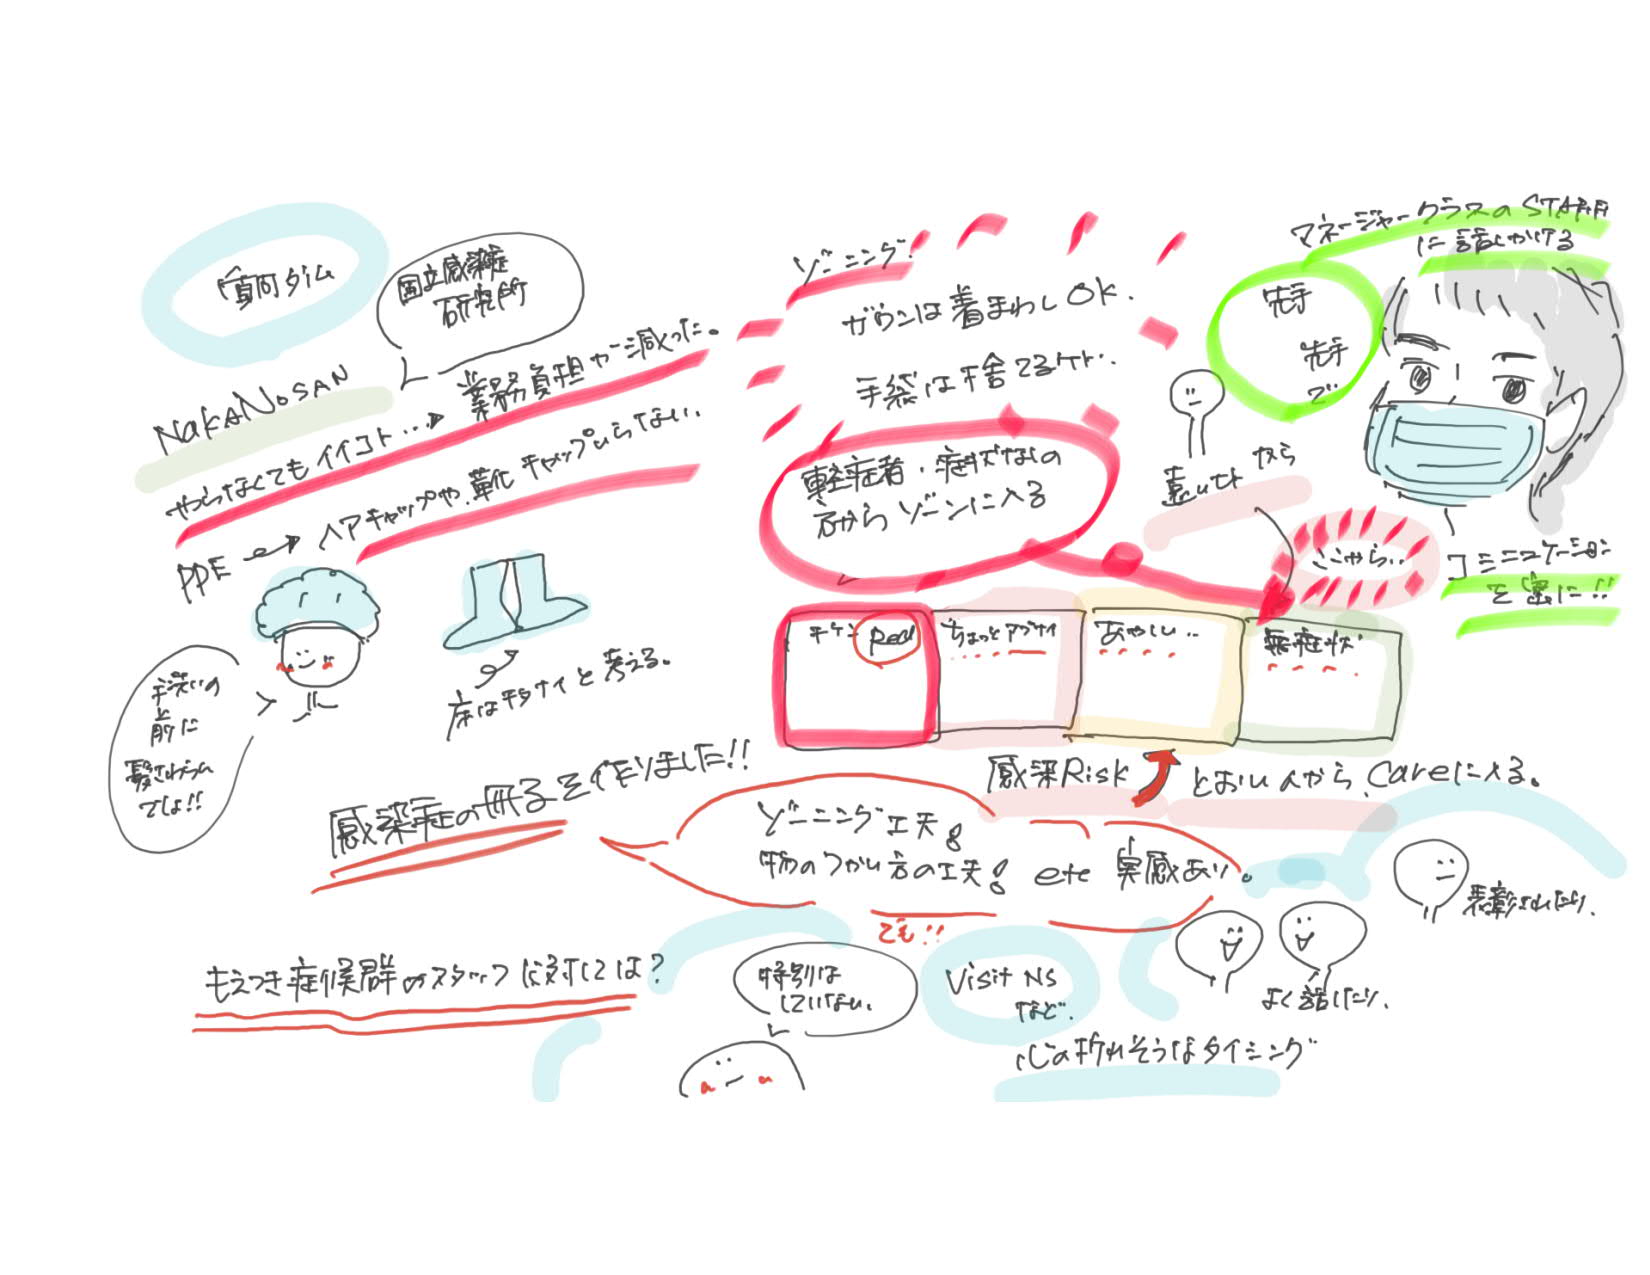 質問タイム
国立感染症
研究所
NAKANOSAN
やらなくてもイイコト…→業務負担が減った。
PPE→ヘアキャップや、靴キャップいらない、
手洗いの
前に
髪さわらない
でしょ!!
床はキタナイと考える。
感染症の冊子を作りました!!
ゾーニング!
ガウンは着まわしOK.
手袋は捨てるケド、
軽症者・症状なしの
方からゾーンに入る
マネージャークラスのSTAFF
に話しかける
先手
先手
で
遠いヒトから
ここから..
コミニュケーション
を密に!!
キケン Red
ちょっとアブナイ
あやしい..
無症状
感染Risk
とおい人から、Careに入る。
ゾーニング工夫!
物のつかい方の工夫! etc 実感あり。
でも!!
もえつき症候群のスタッフに対しては?
特別は
していない。
Visit NS
など.
心の折れそうなタイミング
よく話したり、
表彰されたり、